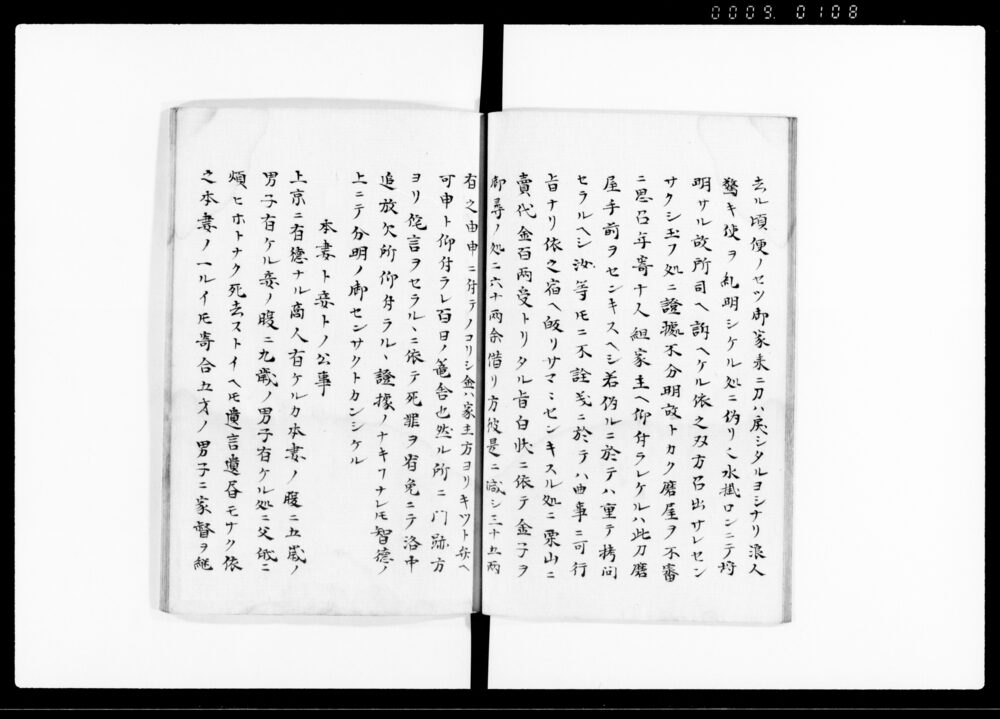 0009. 0108
去ル頃便ノセツ御家来ニ刀ハ戻シタルヨシナリ浪人
驚キ使ヲ糺明シケル処ニ偽リ之水掛ロンニテ埒
明サル故所司ヘ訴ヘケル依之双方召出サレセン
サクシ玉フ処ニ證拠不分明故トカク磨屋ヲ不審
ニ思召年寄十人組家主ヘ仰付ラレケルハ此刀磨
屋手前ヲセンキスヘシ若偽ルニ於テハ重テ拷問
セラルヘシ汝等モニ不詮義ニ於テハ曲事ニ可行
旨ナリ依之宿ヘ皈リサマ〻センキスル処ニ栗山ニ
賣代金百両受トリタル旨白状ニ依テ金子ヲ
御尋ノ処ニ六十両余借リ方彼是ニ減シ三十五両
有之由申ニ付テノコリシ金ハ家主方ヨリキツト矣ヘ
可申ト仰付ラレ百日ノ篭舎也然ル所ニ門跡方
ヨリ侘言ヲセラルヽニ依テ死罪ヲ宥免ニテ洛中
追放欠所仰付ラルヽ證拠ノナキヿナレ𪜈智徳ノ
上ニテ分明ノ御センサクトカンシケル
本妻ト妾トノ公事
上京ニ有徳ナル商人有ケルカ本妻ノ腹ニ五歳ノ
男子有ケル妾ノ腹ニ九歳ノ男子有ケル処ニ父俄ニ
煩ヒホトナク死去ストイヘ𪜈遺言遺書モナク依
之本妻ノ一ルイ𪜈寄合五才ノ男子ニ家督ヲ継